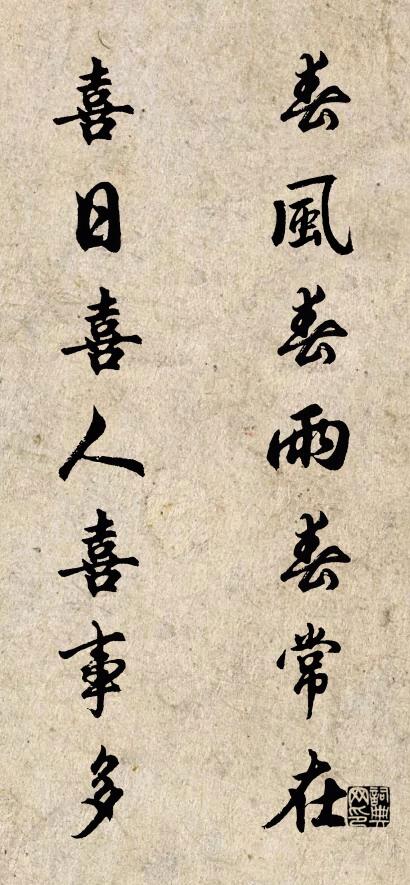 春風春雨春常在
喜日喜人喜事多
詞典网印